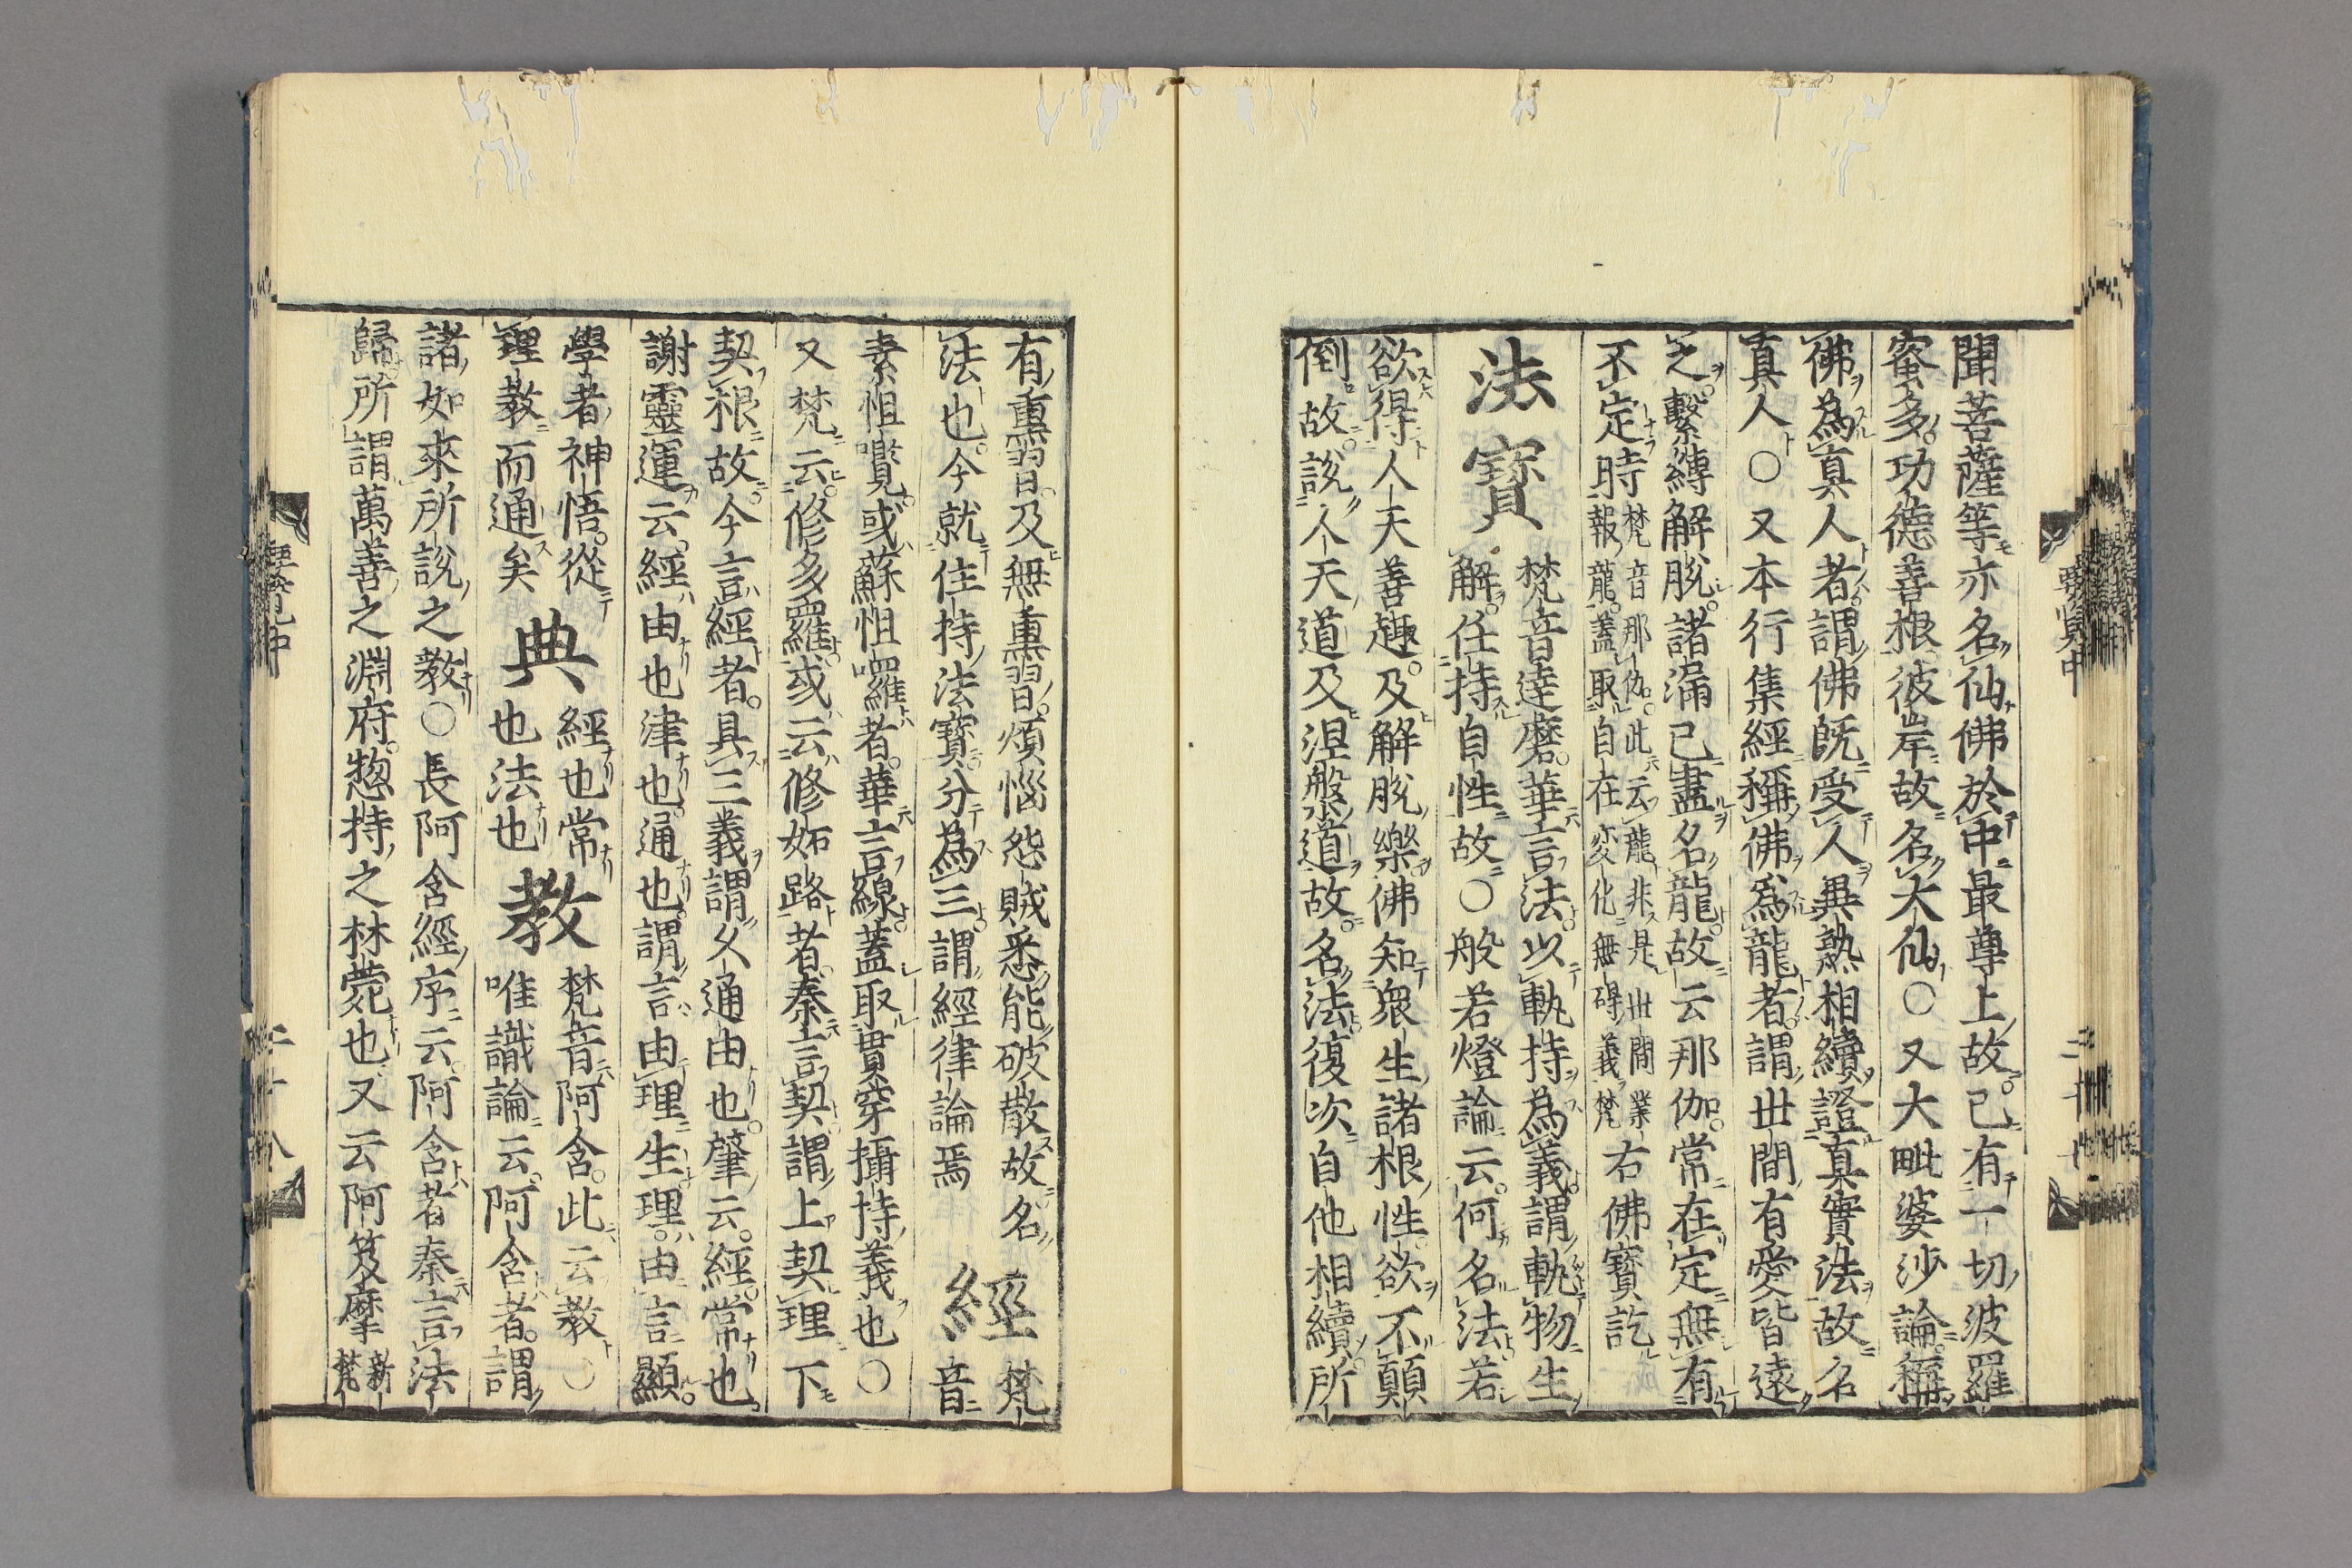 聞菩薩等亦名仙佛於中最尊上故已有一切波羅
蜜多功德善根彼岸故名大仙〇又大毗婆沙論稱
佛為真人者謂佛既受人異熟相續證真實法故名
真人〇又本行集經稱佛為龍者謂世間有愛皆遠
之繫縛解脫諸漏已盡名龍故云那伽常在定無有
不定時梵音那伽此云龍非是世間業
報龍蓋取自在変化無碍義梵右佛寶訖
法寶
梵音達磨華言法以軌持為義謂軌物生
解任持自性故〇般若燈論云何名法若
欲得人天善趣及解脫樂佛知衆生諸根性欲不顛
倒故說人天道及涅槃道故名法復次自他相續所
有熏習及無熏習煩惱怨賊悉能破散故名
法也今就住持法寶分為三謂經律論焉
經
梵
音
素怛囕或蘇怛囉者華言線蓋取貫穿攝持義也〇
又梵云修多羅或云修妬路者秦言契謂上契理下
契根故今言經者具三義謂久通由也肇云經常也
謝靈運云經由也津也通也謂言由理生理由言顯
學者神悟從
理教而通矣
典
經也常
也法也
教
梵音阿含此云教〇
唯識論云阿含者謂
諸如來所說之教〇長阿含經序云阿含者秦言法
歸所謂萬善之淵府惣持之林菀也又云阿笈摩新
梵